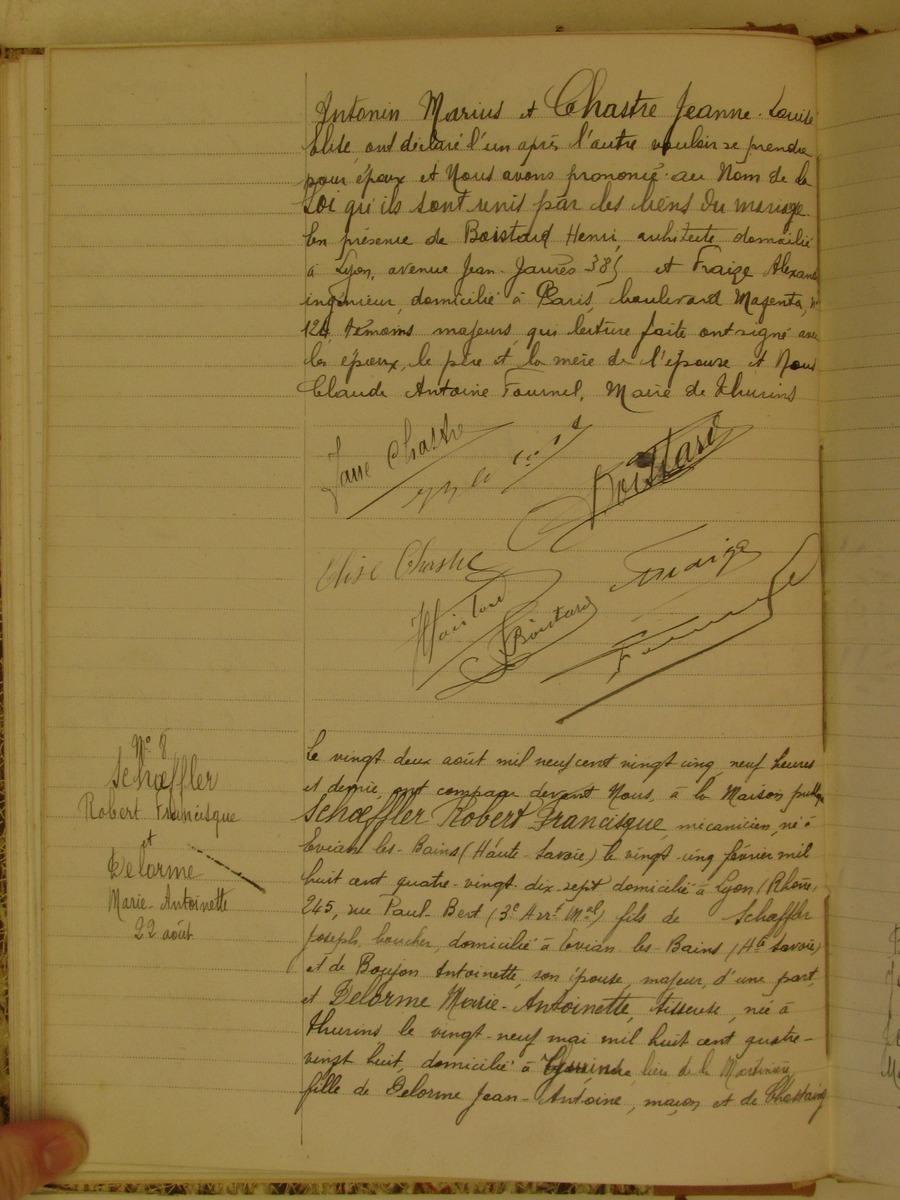 Antonin Marius et Chastre Jeanne-Louise
Elise, ont déclaré l'un après l'autre vouloir se prendre
pour époux et Nous avons prononcé au Nom de la
Loi qu'ils sont unis par les liens du mariage.
En présence de Boistard Henri, architecte domicilié
à Lyon, avenue Jean-Jaurès 385 et Fraize
ingénieur, domicilié à Paris, boulevard Magenta, n°
témoins majeurs, qui lecture faite ont signé avec
les époux, le père et la mère de l'épouse et Nous
Claude Antoine Fournel, Maire de Thurins
Chastre
Boistard
Elise Chastre
Fraize
Boistard
N° 8
Schœffler
Robert Francisque
et
Delorme
Marie-Antoinette
22 août
Le vingt deux août mil neuf cent vingt cinq, neuf heures
et demie, ont comparu devant Nous, à la Maison
Schœffler Robert Francisque, mécanicien, né à
Evian les-Bains (Haute-Savoie) le vingt-cinq février mil
huit cent quatre-vingt-dix-sept domicilié à Lyon (Rhône)
245, rue Paul-Bert (3e Arrt Mal) fils de Schœffler
Joseph, boucher, domicilié à Evian les-Bains (Hte Savoie)
et de Antoinette, son épouse, majeur, d'une part,
et Delorme Marie-Antoinette, tisseuse, née à
Thurins le vingt-neuf mai mil huit cent quatre-
vingt huit, domicilié à lieu de la Martinière,
fille de Delorme Jean-Antoine, maçon et de